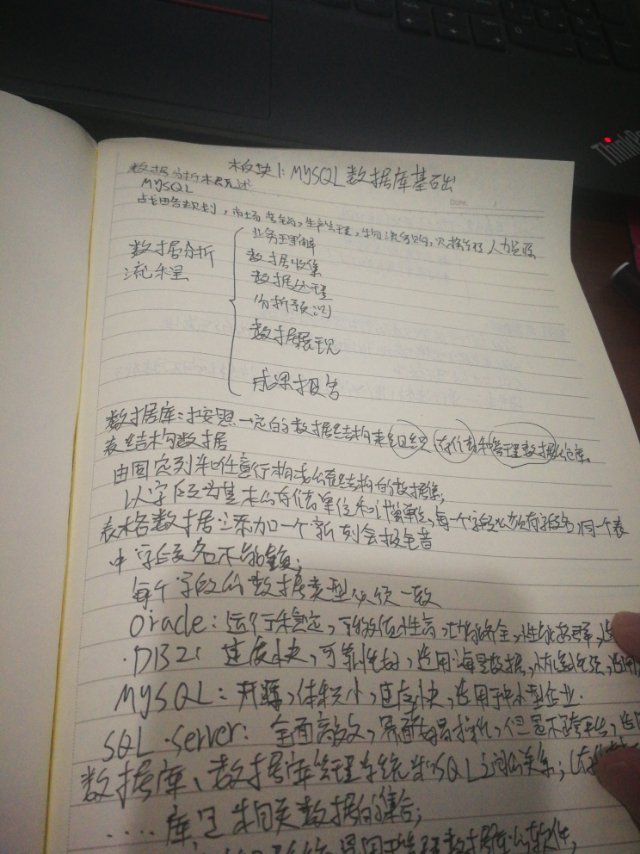 ThinkPad
板块1:MYSQL数据库基础
数据分析概述
MYSQL
战略规划,市场营销,生产管理,物流采购,人力资源
数据分析
流程
业务理解
数据收集
数据处理
分析预测
数据展现
成果报告
数据库:按照一定的数据结构来组织存储和管理数据仓库
表结构数据
由固定列和任意行构成的表结构的数据集;
以字段为基本的存储单位和计算单位,每一个字段必须有字段名同一个表
表格数据 添加一个新列会
中字段名不能重复;
每个字段的数据类型必须一致
Oracle:运行稳定,可移植性高,功能齐全,性能超群,适
DB2:速度快,可靠性好,适用海量数据,
MYSQL:开源,体积小,速度快,适用于中小型企业.
SQL server:全面高效,界面易操作,但是不跨平台,适用
数据库、数据库管理系统和SQL之间的关系,
库是相关数据的集合;
系统是用于管理数据库的软件,